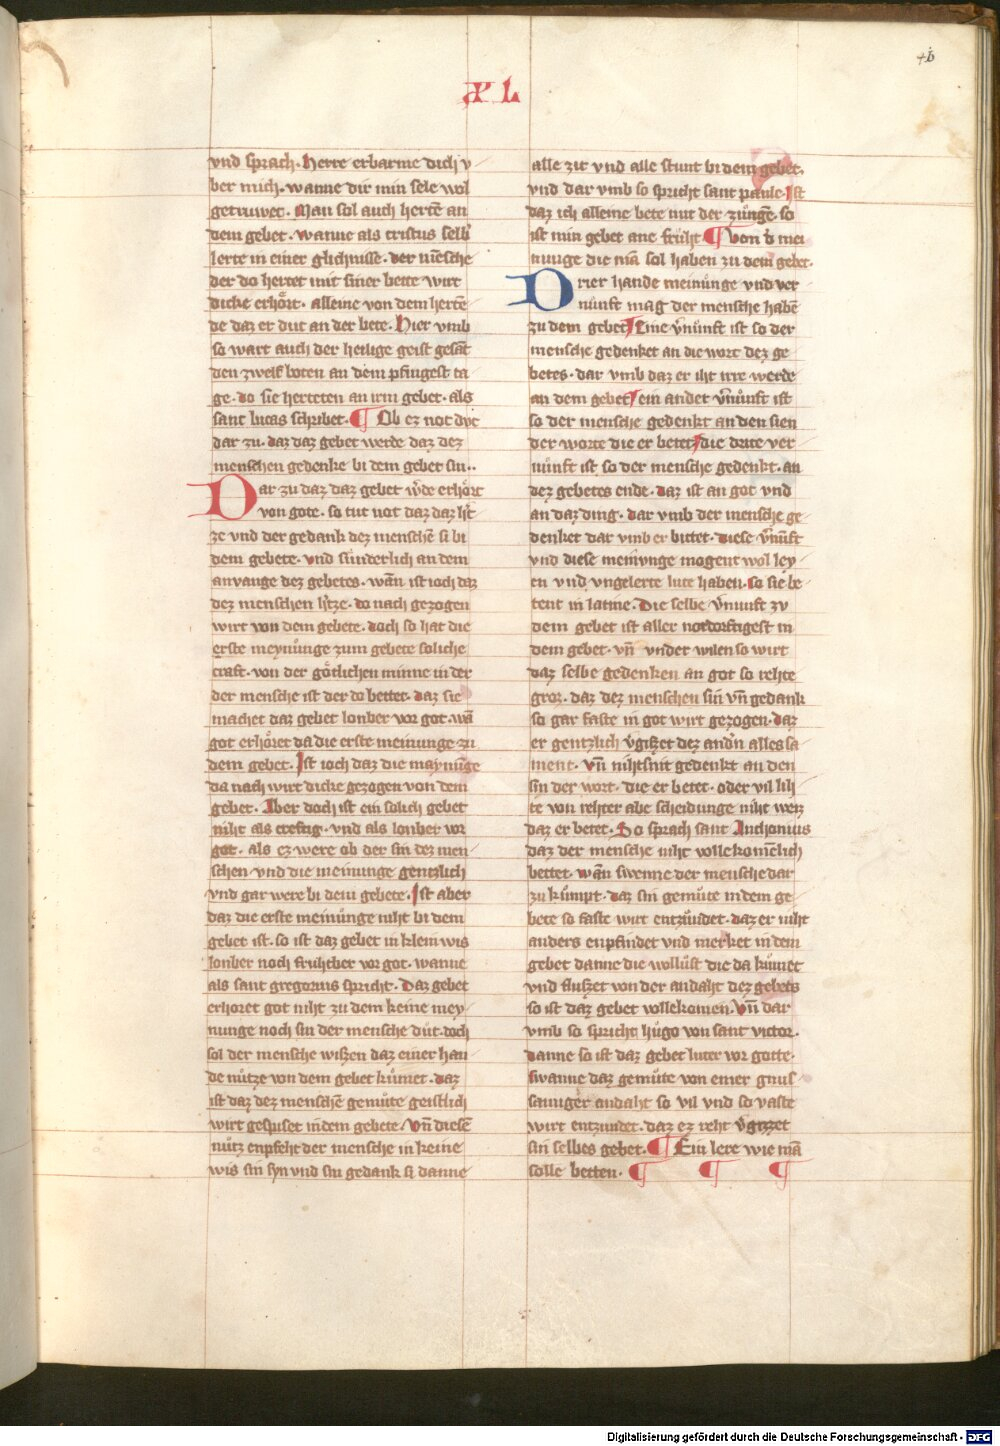 XL
46
vnd sprach. Herre erbarme dich v
ber mich. wanne dir min sele wol
getruwet. Man sol auch hertē an
dem gebet. wanne als cristus selb
lerte in einer glichnisse. der mēsche
der do hertet mit siner bette wirt
dicke erhört. alleine von dem hertē
de daz er dut an der bete. Hier vmb
so wart auch der heilige geist gesāt
den zwelf boten an dem pfingest ta
ge. do sie herteten an irm gebet. als
sant lucas schribet. ¶ Ob ez not dut
dar zu. daz daz gebet werde daz dez
menschen gedenke bi dem gebet sin..
Dar zu daz daz gebet w̄de erhört
von gote. so tut not daz daz h̄t
ze vnd der gedank dez menschē si bi
dem gebete. vnd sünderlich an dem
anvange dez gebetes. wān ist ioch daz
dez menschen h̄tze. do nach gezogen
wirt von dem gebete. doch so hat die
erste meynunge zum gebete soliche
craft. von der götlichen minne in der
der mensche ist der do bettet. daz sie
machet daz gebet lonber vor got. wā
got erhöret da die erste meinunge zu
dem gebet. Ist ioch daz die maynūge
da nach wirt dicke gezogen von dem
gebet. Aber doch ist ein solich gebet
niht als creftig. vnd als lonber vor
got. als ez were ob der sin dez men
schen vnd die meinunge gentzlich
vnd gar were bi dem gebete. Ist aber
daz die erste meinunge niht bi dem
gebet ist. so ist daz gebet in klein wis
lonber noch fruhtber vor got. wanne
als sant gregorius spricht. Daz gebet
erhoret got niht zu dem keine mey
nunge noch sin der mensche dut. doch
sol der mensche wißen daz einer han
de nütze von dem gebet kümet. daz
ist daz dez menschē gemüte geistlich
wirt gespiset in dem gebete. Vn̄ diesē
nütz enpfeht der mensche in keine
wis sin syn vnd sin gedank si danne
alle zit vnd alle stunt bi dem gebet.
vnd dar vmb so spricht sant paule. Ist
daz ich alleine bete mit der zungē. so
ist min gebet ane fruht. ¶ Von d̄ mei
nunge die mā sol haben zu dem gebet.
Drier hande meinunge vnd ver
nunft mag der mensche habē
zu dem gebet. Eine v̄nunft ist so der
mensche gedenket an die wort dez ge
betes. dar vmb daz er iht irre werde
an dem gebet. ein ander v̄nunft ist
so der mensche gedenkt an den sien
der worte die er betet. die dritte ver
nunft ist so der mensche gedenkt. an
dez gebetes ende. daz ist an got vnd
an daz ding. dar vmb der mensche ge
denket dar vmb er bittet. diese v̄nūft
vnd diese meinunge mogent wol ley
en vnd vngelerte lute haben. so sie be
tent in latine. Die selbe v̄nunft zu
dem gebet ist aller notdorftigest in
dem gebet. vn̄ vnder wilen so wirt
daz selbe gedenken an got so rehte
groz. daz dez menschen sin vn̄ gedank
so gar faste in got wirt gezogen. daz
er gentzlich v̄gißet dez andn̄ alles sa
ment. Vn̄ nihtsnit gedenkt an den
sin der wort. die er betet. oder vil lih
te von rehter abe scheidunge niht weiz
daz er betet. So sprach sant Anthonius
daz der mensche niht vollekomēlich
bettet. wān swenne der mensche dar
zu kumpt. daz sin gemüte in dem ge
bete so faste wirt entzündet. daz er niht
anders enpfindet vnd merket in dem
gebet danne die wollust die da kümet
vnd flußet von der andaht dez gebets
so ist daz gebet vollekomen. Vn̄ dar
vmb so spricht hugo von sant victor.
danne so ist daz gebet luter vor gotte.
swanne daz gemüte von einer gnuf
samiger andaht so vil vnd so vaste
wirt entzundet. daz ez reht v̄gizzet
sin selbes gebet. ¶ Ein lere wie mā
solle betten. ¶ ¶ ¶
Digitalisierung gefördert durch die Deutsche Forschungsgemeinschaft - DFG